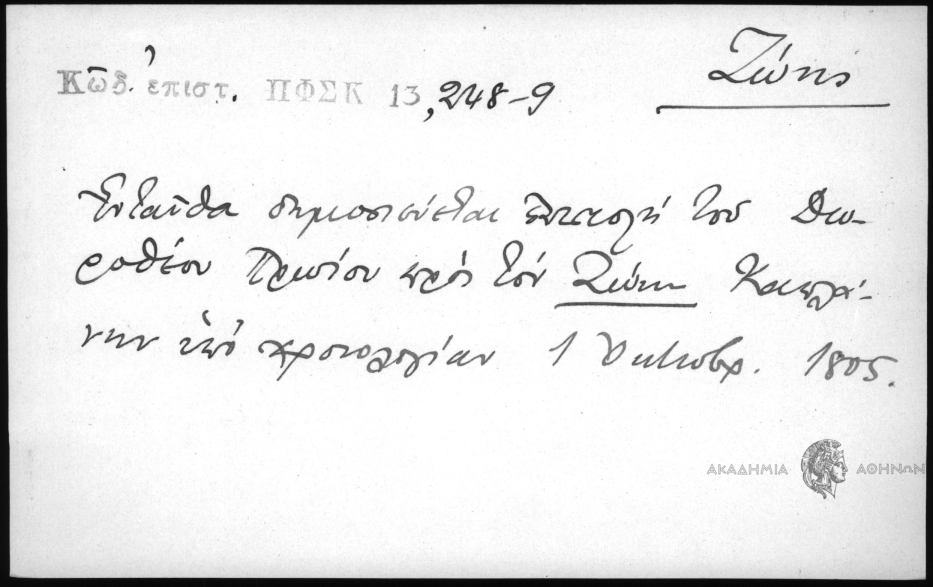 Ζώης
Κῶδ. ἐπιστ. ΠΦΣΚ 13, 248-9
Ἐνταῦθα δημοσιεύεται ἐπιστολή τοῦ Δω-
ροθέου Πρωίου πρός τόν Ζώην Καπλά-
νην ὑπό χρονολογίαν 1 Ὀκτωβρ. 1805.
ΑΚΑΔΗΜΙΑ ΑΘΗΝΩΝ